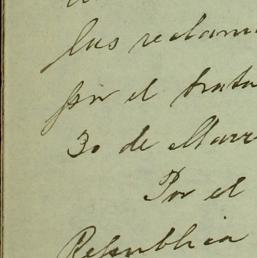 las reclam
por el trata
30 de Marz
Por el
Republica